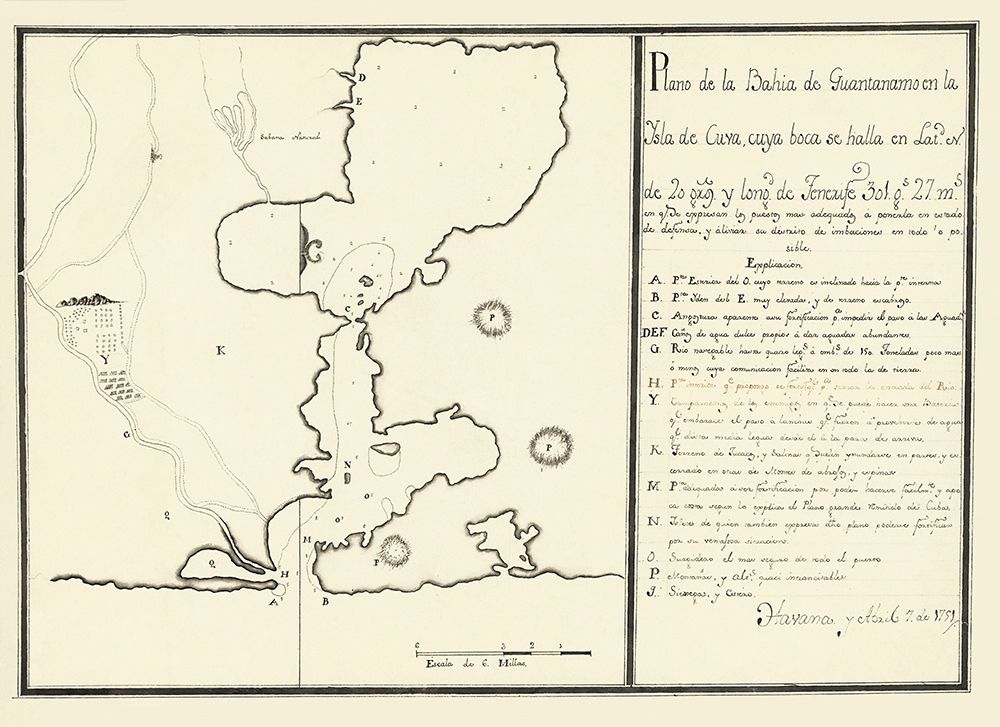 Plano de la Bahia de Guantanamo en la
Ysla de Cuva, cuya boca se halla en Latᵈ. N.
de 20 grˢ. y longᵈ. de Tenerife 301 gˢ. 27 mˢ.
en qᵉ. Se expresan los puestos mas adequados á ponerla en estado
de defensa, y áliviar su distrito de imbaciones en todo lo po-
sible.
Explicacion.
A. Pᵗᵃ Exterior del O. cuyo terreno es inclinado hacia la pᵗᵉ interna
B. Pᵗᵃ Yden del E. muy elevada, y de terreno escabroso.
C. Angostura aparente a su fortificacion pᵃ. impedir el paso á las Aguadˢ
DEF Caños de agua dulces propios á dar aguadas abundantes.
G. Rio navegable hasta quatro legˢ. á embˢ. de 150. Toneladas poco mas
ó menos cuya comunicacion facilita en un todo la de tierra.
H. Pᵗᵃ interior qᵉ propongo se fortifiqᵉ pᵃ. cerrar la entrada del Rio.
Y. Campamento de los enemigos en qᵉ. Se puede hacer una Bateria
qᵉ. embarase el paso á lanchas qᵉ. fueren á proveherse de agua
qᵉ. dista media legua desde el á la parte de arriva.
K. Terreno de Tucacos, y Salinas qᵉ. Suelen ynundarse en partes, y es
cerrado en otras de Montes de abrojos, y espinas
M. Pᵗᵃ adequadas á ser fortificacion por poder hacerse facilmᵗᵉ. y apo
ca costa segun lo explica el Plano grande remitido de Cuba.
N. Isletas de quien tambien expresa dho plano poderse fortificar
por su ventajosa situacion.
O. Surgidero el mas seguro de todo el puerto
P. Montañas, y altˢ. quaci intransitables
Q. Sienegas, y
Havana y Abril 7. de 1751
D
E
Sabana
C
P
K
Y
G
P
N
O
O
M
P
Q
Q
H
A
B
6 3 2 1
Escala de 6. Millas.